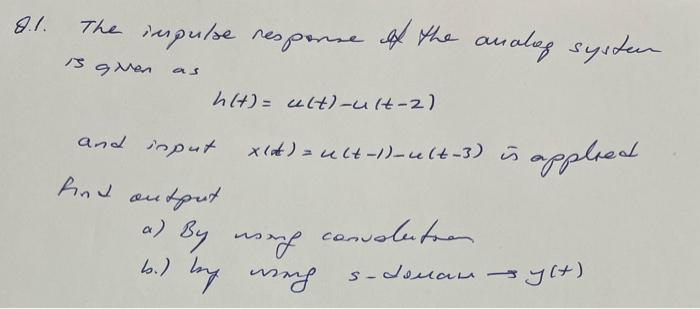 Q.1. The impulse response of the analog system
is given as
h(t) = u(t)-u(t-2)
and input x(t) = u(t-1)-u(t-3) is applied
find output
a) By using convolution
b.) by using s-domain → y(t)